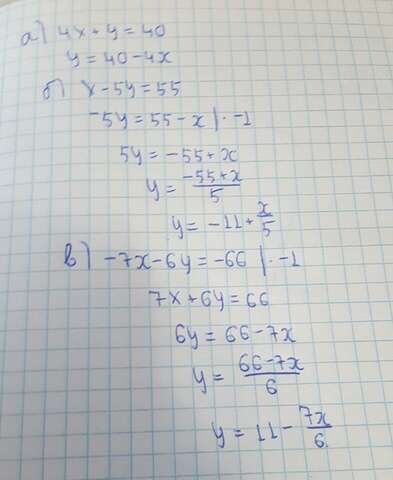 а) 4x + y = 40
y = 40 - 4x
б) x - 5y = 55
-5y = 55 - x | · -1
5y = -55 + x
y = \frac{-55 + x}{5}
y = -11 + \frac{x}{5}
в) -7x - 6y = -66 | · -1
7x + 6y = 66
6y = 66 - 7x
y = \frac{66 - 7x}{6}
y = 11 - \frac{7x}{6}